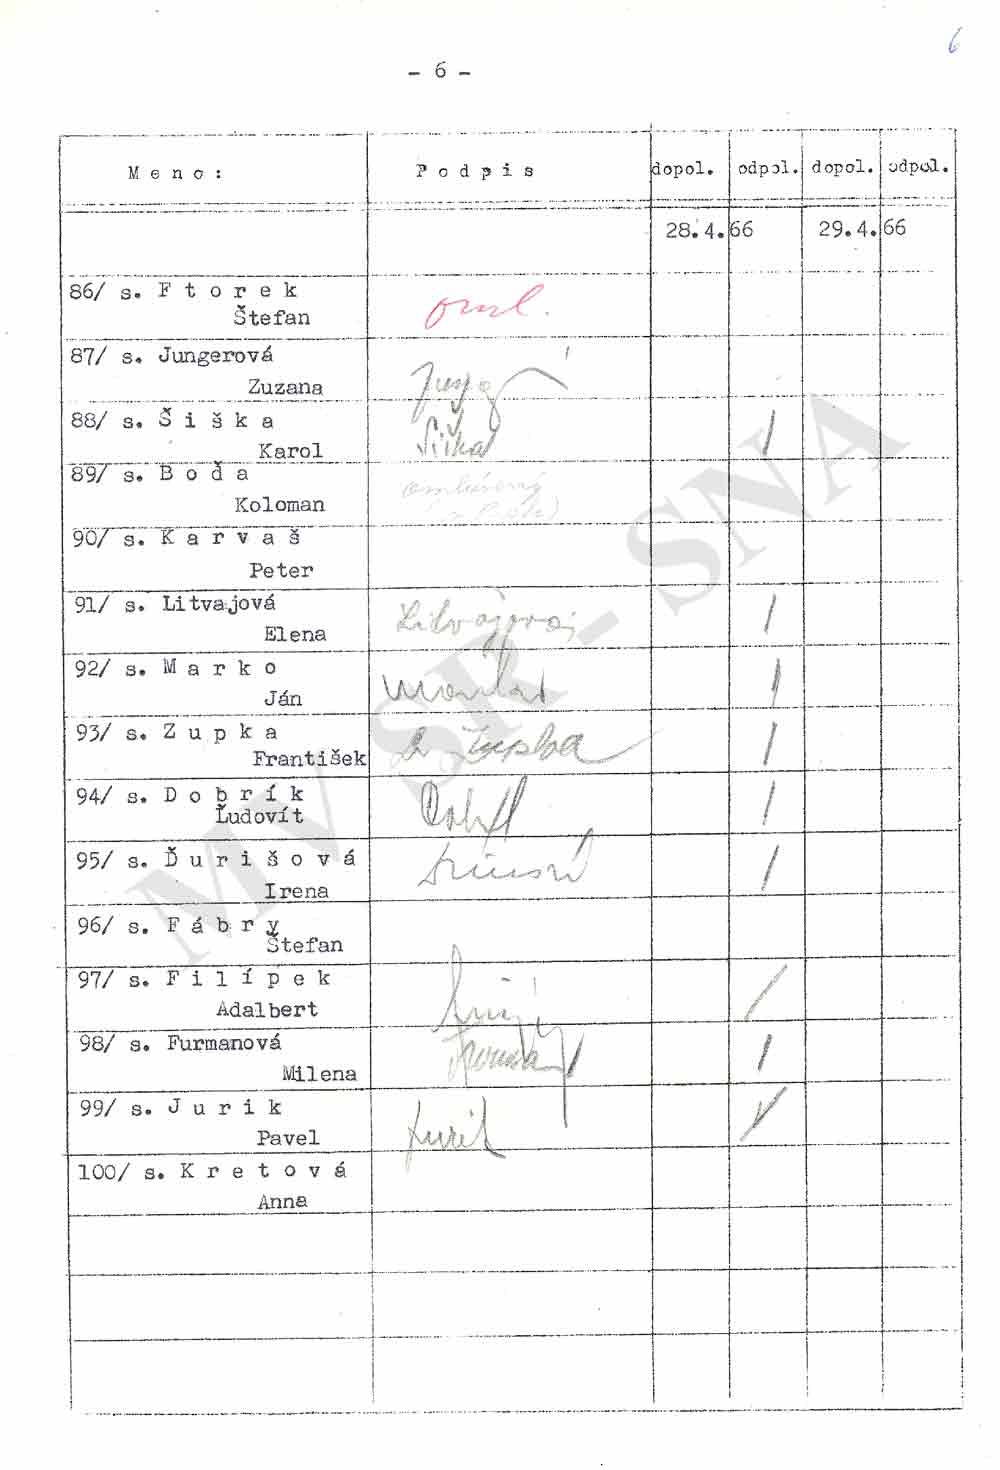 6
- 6 -
M e n o : P o d p i s dopol. odpol. dopol. odpol.
28.4.66 29.4.66
86/ s. F t o r e k
Štefan
oml.
87/ s. Jungerová
Zuzana
88/ s. Š i š k a
Karol
Šiška
89/ s. B o ď a
Koloman
90/ s. K a r v a š
Peter
91/ s. Litvajová
Elena
Litvajová
92/ s. M a r k o
Ján
Marko
93/ s. Z u p k a
František
Župka
94/ s. D o b r í k
Ľudovít
95/ s. Ď u r i š o v á
Irena
96/ s. F á b r y
Štefan
97/ s. F i l í p e k
Adalbert
98/ s. Furmanová
Milena
99/ s. J u r i k
Pavel
Jurik
100/ s. K r e t o v á
Anna
MV SR - SNA